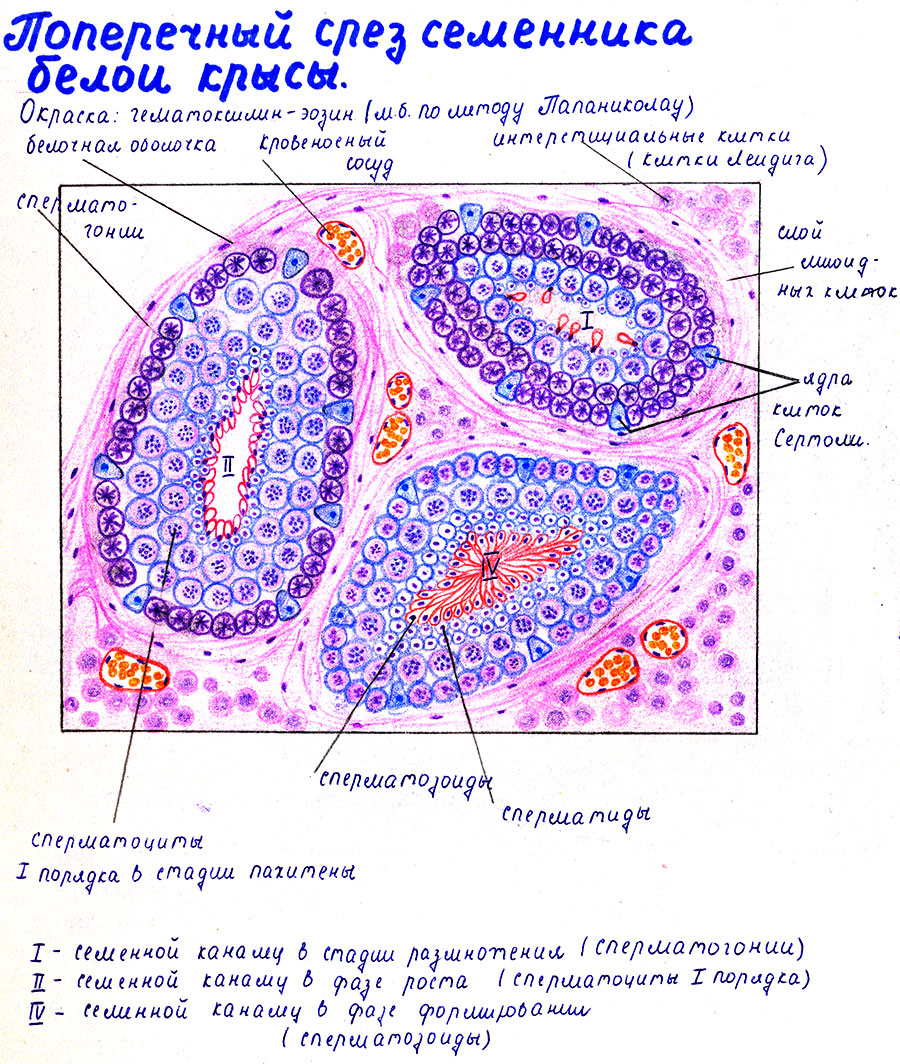 Поперечный срез семенника
белои крысы.
Окраска: гематоксилин-эозин (м.б. по методу Папаниколау)
белочная оболочка
кровеносный
сосуд
интерстициальные клетки
(клетки Лейдига)
спермато-
гонии
слой
миоид-
ных клеток
ядра
клеток
Сертоли.
I
II
IV
сперматозоиды
сперматиды
сперматоциты
I порядка в стадии пахитены
I - семенной каналец в стадии размножения (сперматогонии)
II - семенной каналец в фазе роста (сперматоциты I порядка)
IV - семенной каналец в фазе формирования
(сперматозоиды)